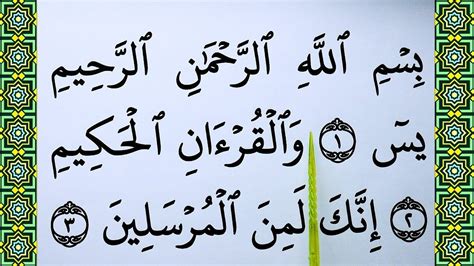 بِسْمِ ٱللَّهِ ٱلرَّحْمَٰنِ ٱلرَّحِيمِ
يسٓ ١ وَٱلْقُرْءَانِ ٱلْحَكِيمِ
٢ إِنَّكَ لَمِنَ ٱلْمُرْسَلِينَ ٣